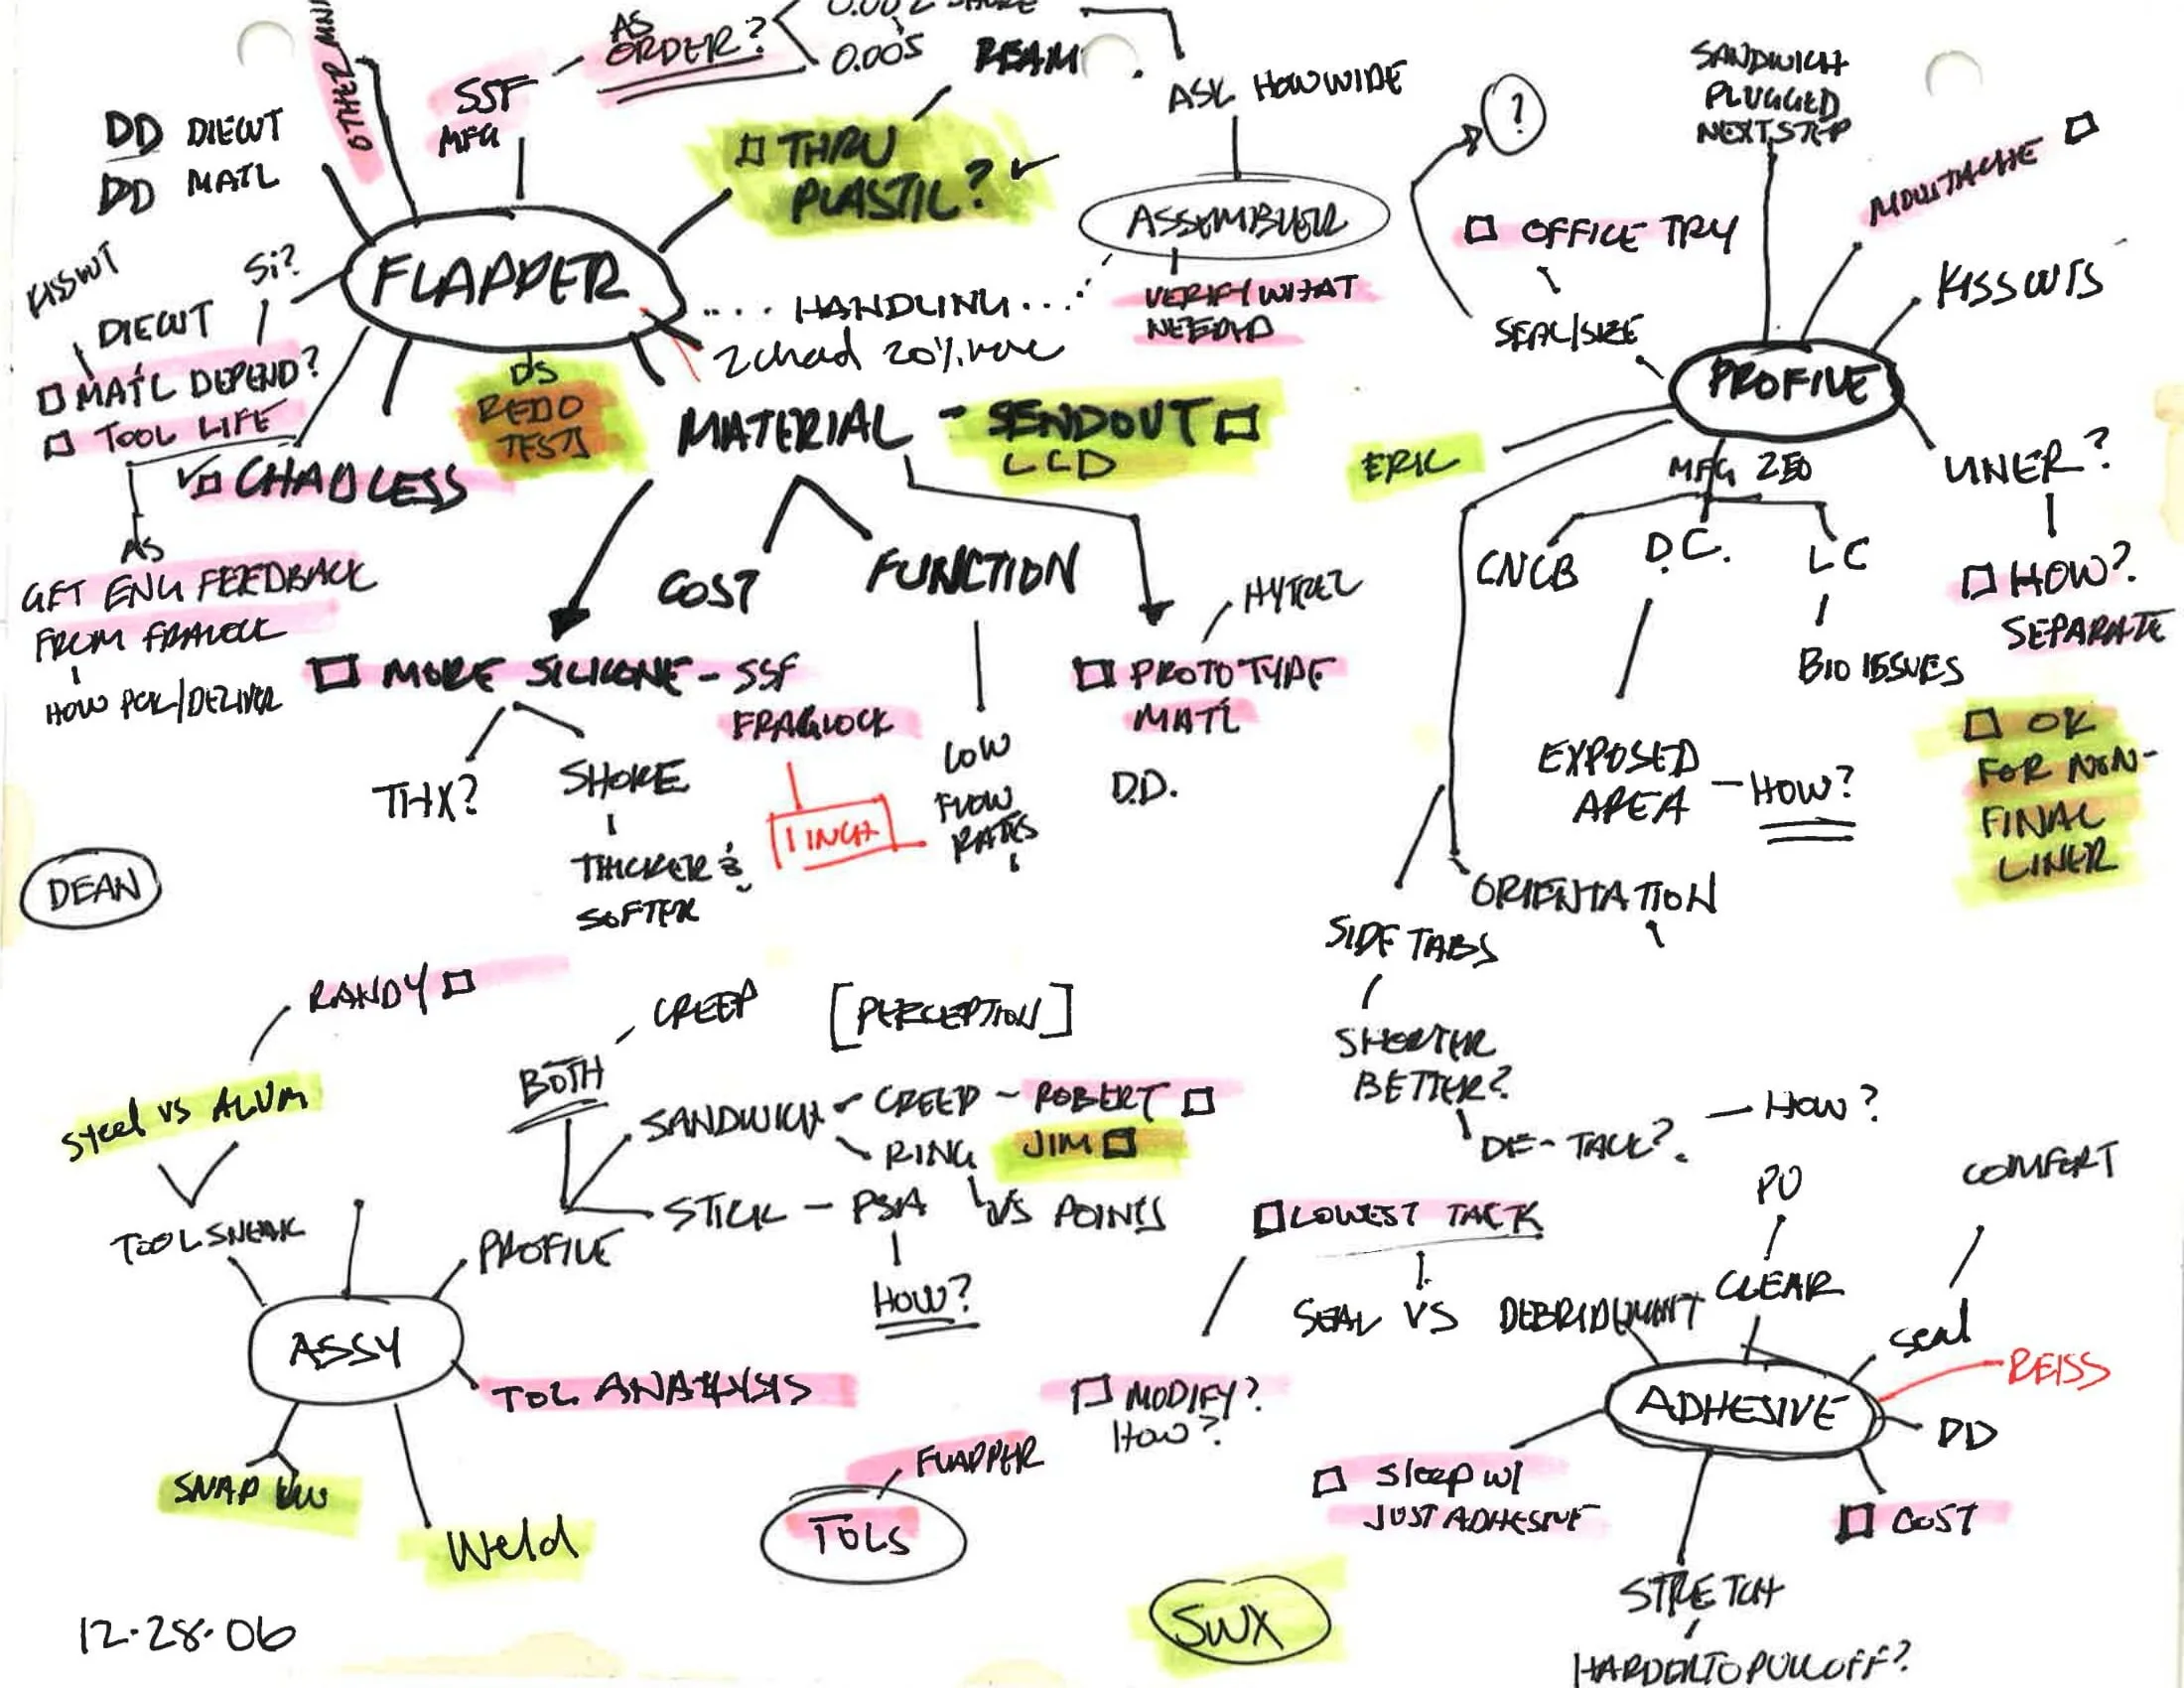 OTHER
AS
ORDER?
0.002
0.005
BEAM
ASK HOW WIDE
SSF
MFG
DD DIECUT
DD MATL
THRU
PLASTIC?
ASSEMBLER
VERIFY WHAT
NEEDED
FLAPPER
HANDLING
2 chad 20%
KISSCUT
Si?
DIECUT
MATL DEPEND?
TOOL LIFE
CHADLESS
DS
REDO
TESTS
MATERIAL - SENDOUT
LCD
AS
GET ENG FEEDBACK
FROM FRALOCK
HOW PCK/DELIVER
COST
FUNCTION
HYTREL
MORE SILICONE - SSF
FRAGLOCK
PROTOTYPE
MATL
D.D.
THX?
SHORE
THICKER &
SOFTER
1 INCH
LOW
FLOW
RATES
DEAN
?
SANDWICH
PLUGGED
NEXT STEP
MOUSTACHE
OFFICE TRY
SEAL/SIZE
KISSCUTS
PROFILE
ERIC
MFG 250
LINER?
CNCB
D.C.
LC
HOW?
SEPARATE
BIO ISSUES
OK
FOR NON-
FINAL
LINER
EXPOSED
AREA - HOW?
ORIENTATION
SIDE TABS
SHORTER
BETTER?
DE-TACK?
HOW?
RANDY
Steel vs ALUM
TOOL SNEAK
CREEP
[PERCEPTION]
BOTH
SANDWICH
CREEP - ROBERT
RING
JIM
STICK - PSA
VS POINTS
HOW?
PROFILE
ASSY
TOL ANALYSIS
SNAP
Weld
12.28.06
FLAPPER
TOLS
SWX
LOWEST TACK
SEAL VS DEBRIDEMENT
MODIFY?
How?
PU
CLEAR
COMFORT
Seal
REISS
ADHESIVE
DD
Sleep w/
JUST ADHESIVE
COST
STRETCH
HARDER TO PULL OFF?